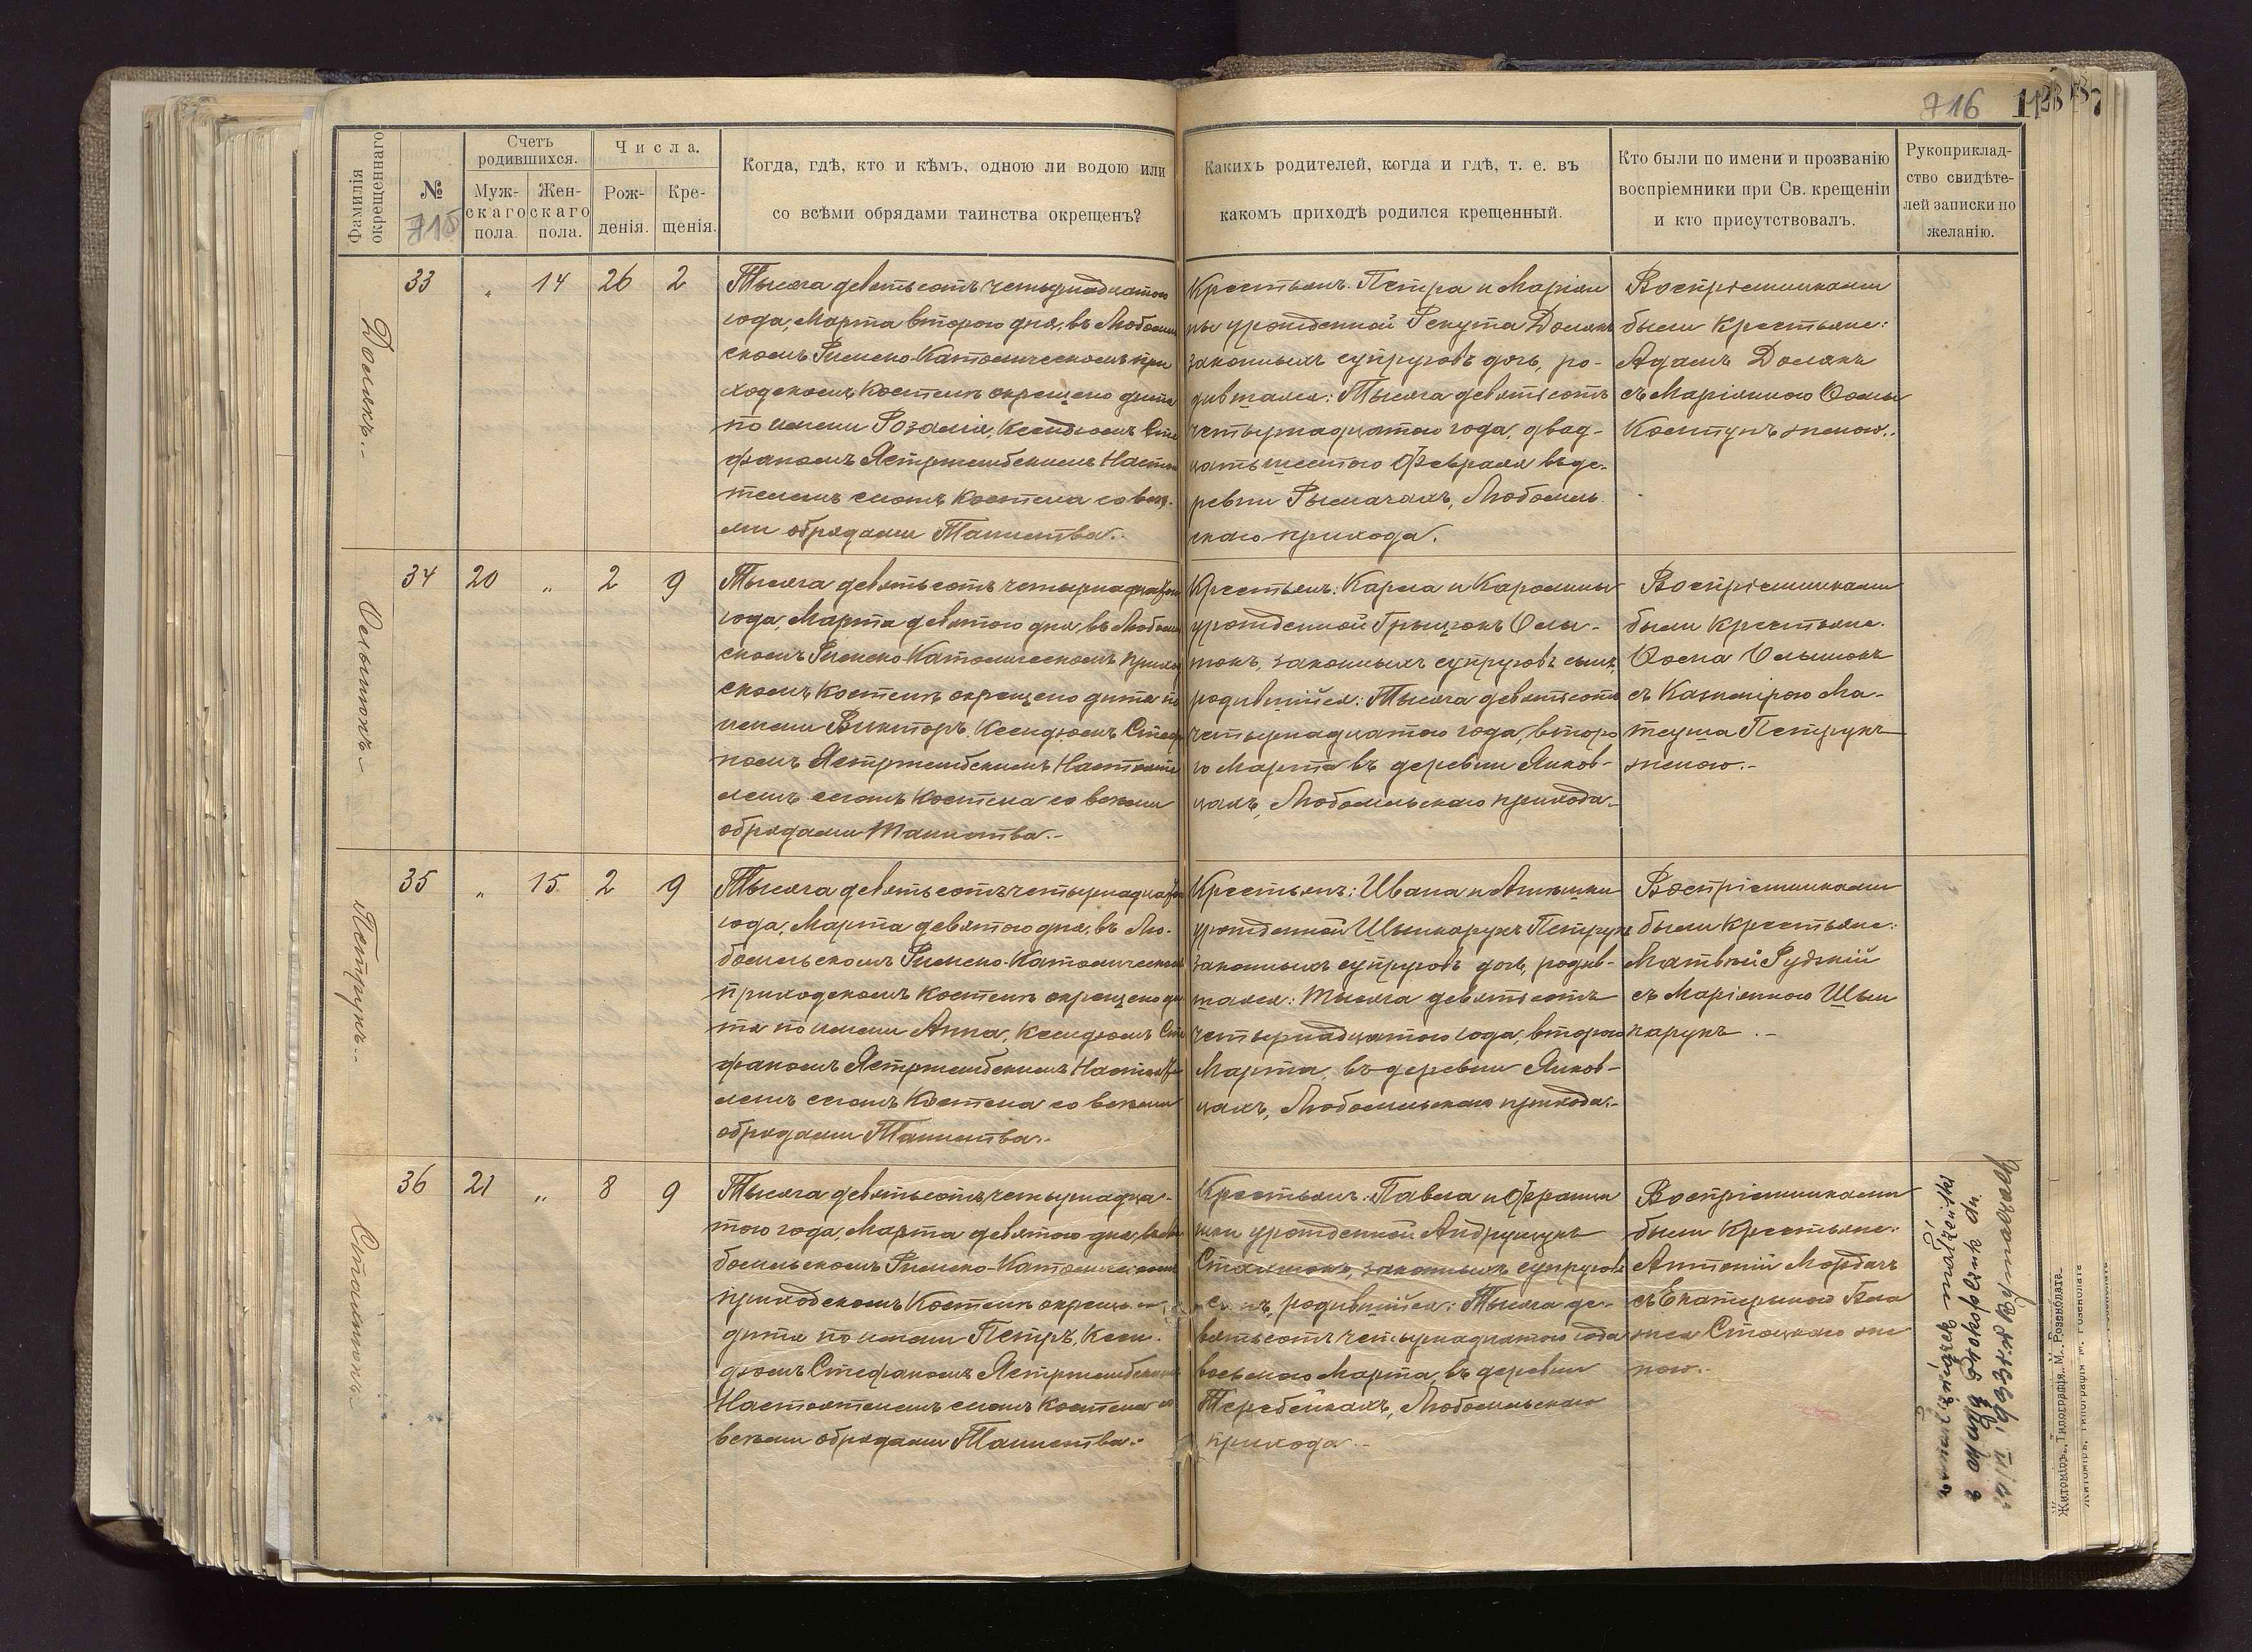 716
Фамилія окрещеннаго
№
715
Счетъ родившихся.
Мужскаго пола.
Женскаго пола.
Числа.
Рожденія.
Крещенія.
Когда, гдѣ, кто и кѣмъ, одною ли водою или
со всѣми обрядами таинства окрещенъ?
Какихъ родителей, когда и гдѣ, т. е. въ
какомъ приходѣ родился крещенный.
Кто были по имени и прозванію
воспріемники при Св. крещеніи
и кто присутствовалъ.
Рукоприклад-
ство свидѣте-
лей записки по
желанію.
Долякъ.
33
„
14
26
2
Тысяча девятьсотъ четырнадцатого
года, Марта второго дня, въ Любомль
скомъ Римско-Католическомъ при
ходскомъ Костелѣ окрещено дитя
по имени Розалія, Ксендзомъ Сте
фаномъ Ястржембскимъ Настоя
телемъ сего Костела со всѣ-
ми обрядами Таинства.
Крестьянъ: Петра и Маріан
ны урожденной Декута Долякъ
законныхъ супруговъ дочь, ро-
дившаяся: Тысяча девятьсотъ
четырнадцатого года, двад-
цать шестого Февраля въ де-
ревни Рымачахъ, Любомль-
скаго прихода.
Воспріемниками
были Крестьяне:
Адамъ Долякъ
съ Маріянною Фомы
Ковтунъ женою.
34
20
„
2
9
Тысяча девятьсотъ четырнадцатого
года, Марта девятого дня, въ Любомль
скомъ Римско Католическомъ приход
скомъ Костелѣ окрещено дитя по
имени Викторъ, Ксендзомъ Стефа
номъ Ястржембскимъ Настояте
лемъ сего Костела со всѣми
обрядами Таинства.
Крестьянъ: Карла и Каролины
урожденной Грыцюкъ
законныхъ супруговъ сынъ,
родившійся: Тысяча девятьсотъ
четырнадцатого года, второ
го Марта въ деревни Янков-
цахъ, Любомльскаго прихода.
Воспріемниками
были Крестьяне:
Фома
съ Казимірою Ма-
теуша Петрукъ
женою.
Петрукъ.
35
„
15
2
9
Тысяча девятьсотъ четырнадцатого
года, Марта девятого дня, въ Лю-
бомльскомъ Римско-Католическомъ
приходскомъ Костелѣ окрещено ди
тя по имени Анна, Ксендзомъ Сте
фаномъ Ястржембскимъ Настояте
лемъ сего Костела со всѣми
обрядами Таинства.
Крестьянъ: Ивана и
урожденной Петрукъ
законныхъ супруговъ дочь, родив-
шаяся: Тысяча девятьсотъ
четырнадцатого года, второго
Марта, въ деревни Янков-
цахъ, Любомльскаго прихода.
Воспріемниками
были Крестьяне:
Матвѣй Рудзкій
съ Маріянною
36
21
„
8
9
Тысяча девятьсотъ четырнадца-
того года, Марта девятого дня, въ Лю
бомльскомъ Римско-Католическомъ
приходскомъ Костелѣ окрещено
дитя по имени Петръ, Ксен-
дзомъ Стефаномъ Ястржембскимъ
Настоятелемъ сего Костела со
всѣми обрядами Таинства.
Крестьянъ: Павла и Францы
шки урожденной Андрущукъ
законныхъ супруговъ
сынъ, родившійся: Тысяча де-
вятьсотъ четырнадцатого года
восьмого Марта, въ деревни
Теребейкахъ, Любомльскаго
прихода.
Воспріемниками
были Крестьяне:
Антоній
съ Екатериной
женою.
zawarł związek małżeński
z
Житоміръ, Типографія М. Розенблата